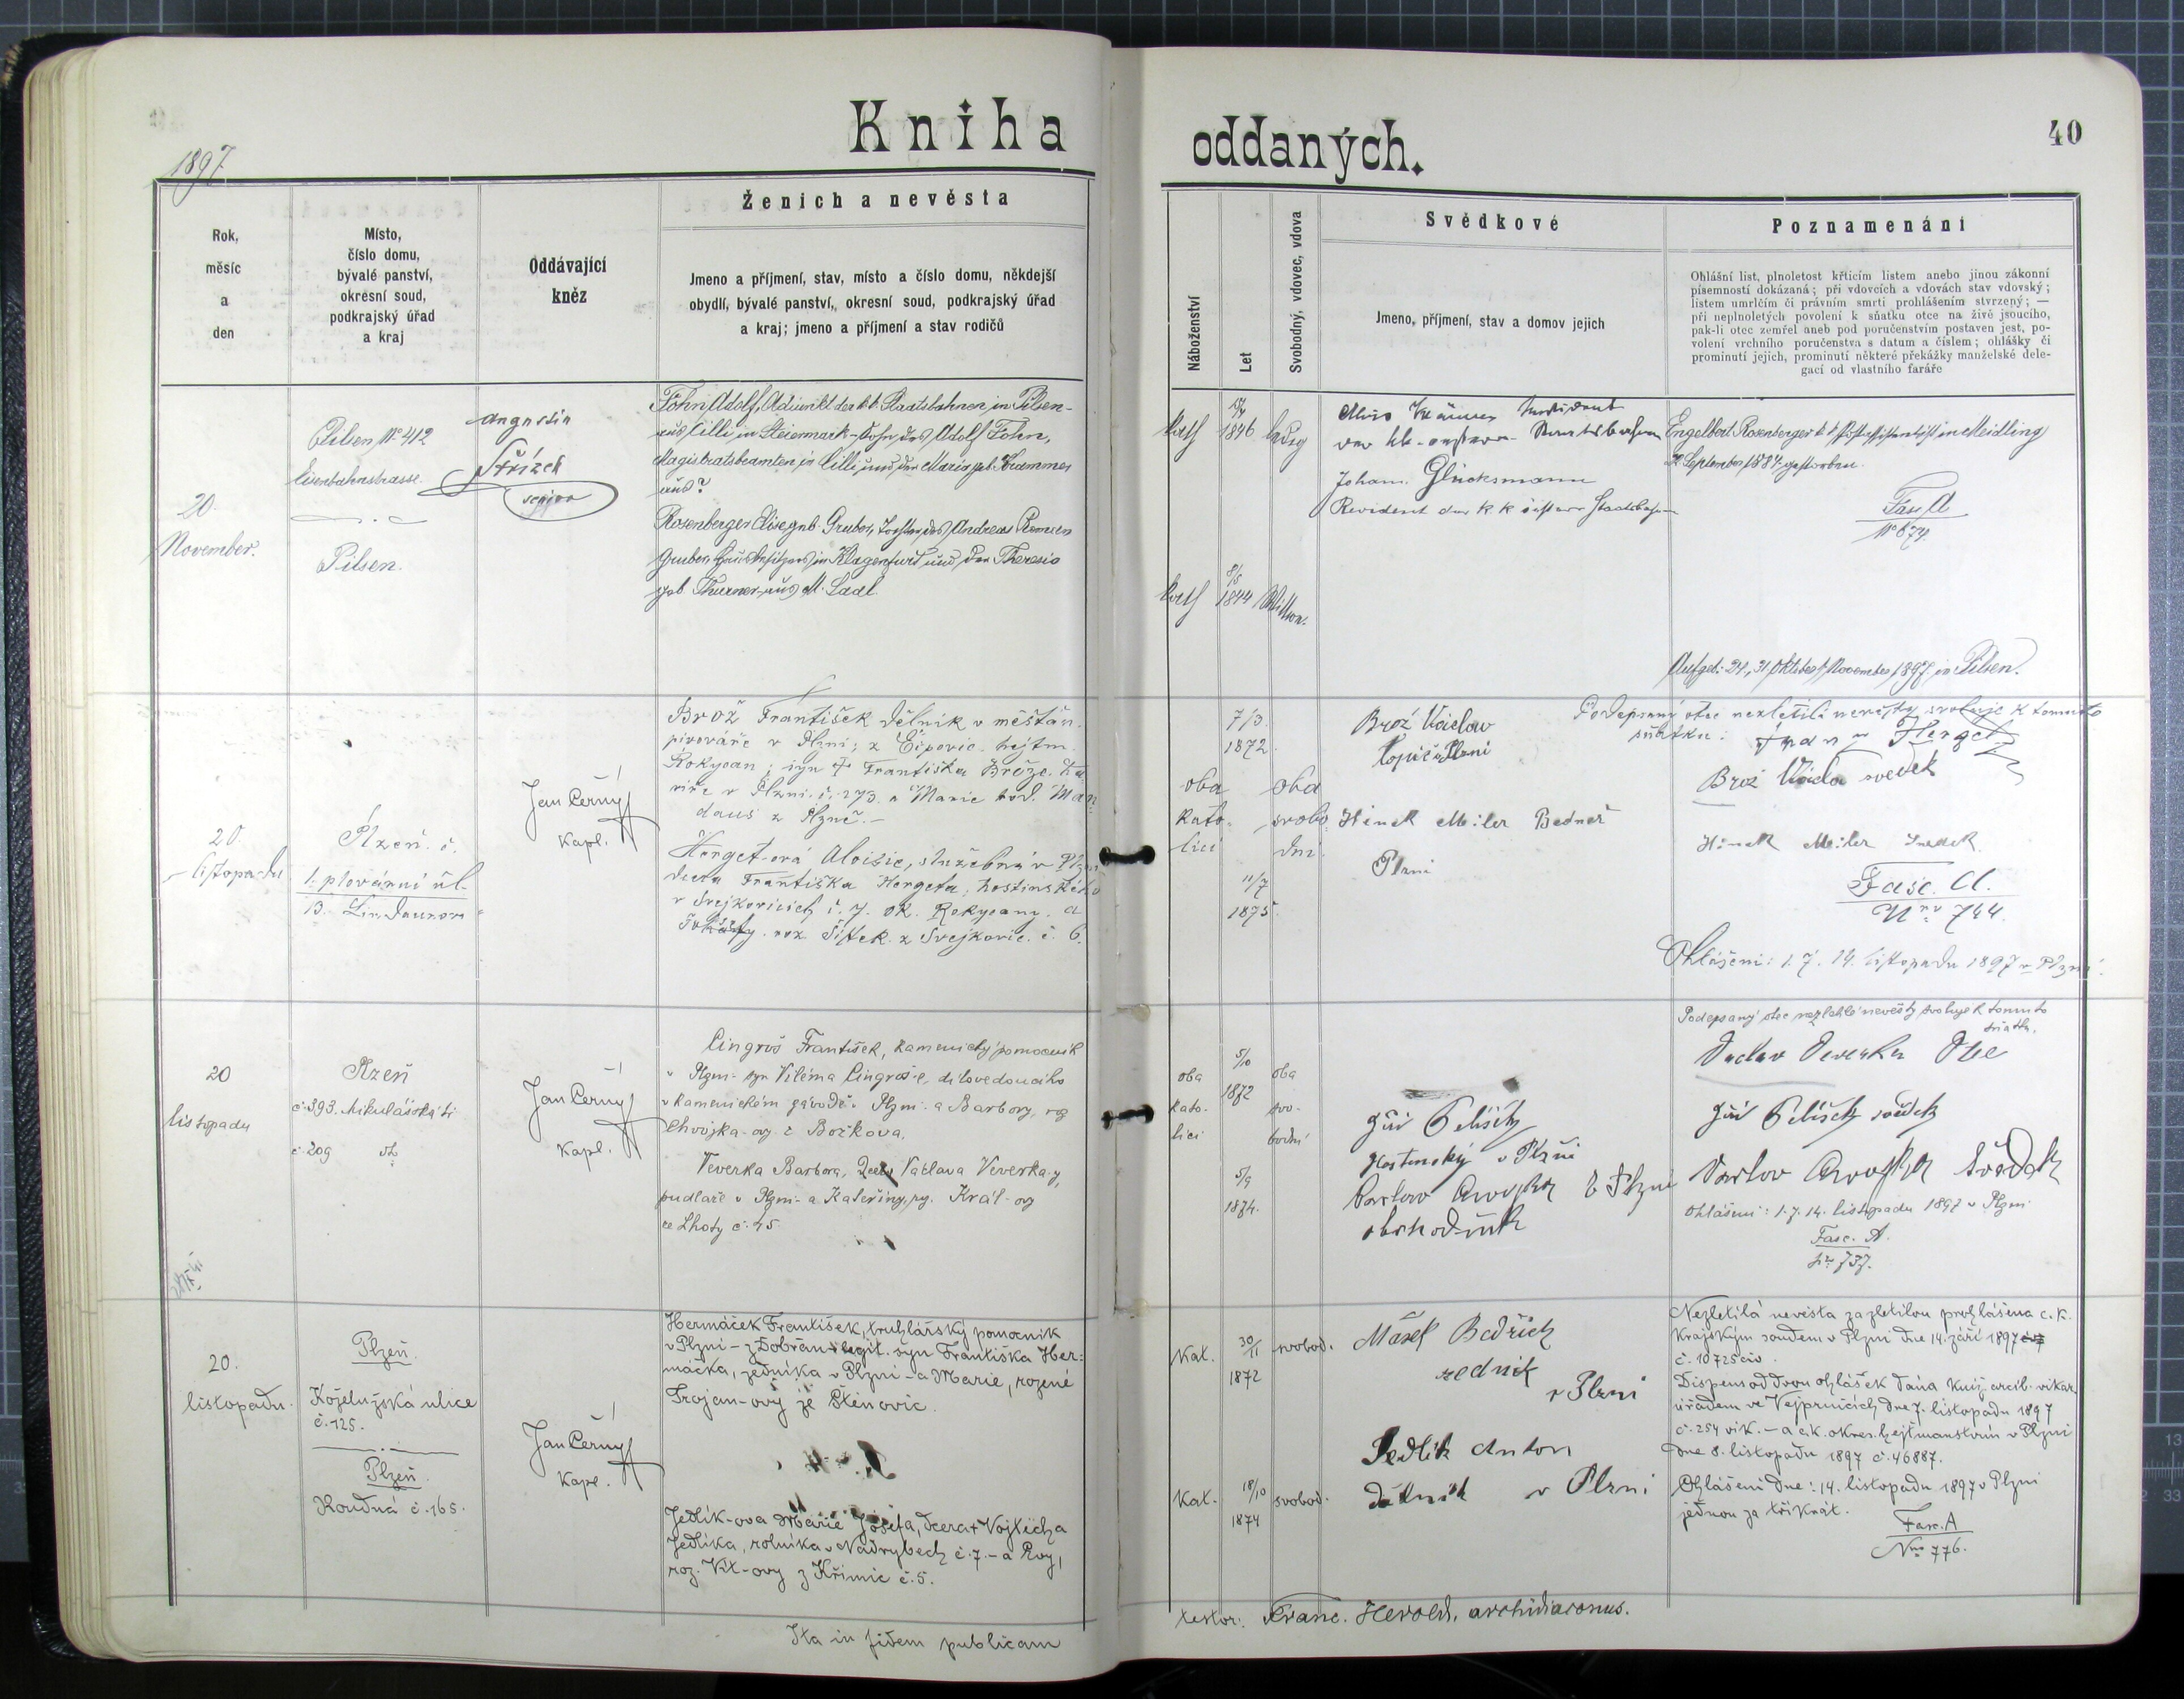 Kniha oddaných.
40
1897
Rok,
měsíc
a
den
Místo,
číslo domu,
bývalé panství,
okresní soud,
podkrajský úřad
a kraj
Oddávající
kněz
Ženich a nevěsta
Jmeno a příjmení, stav, místo a číslo domu, někdejší
obydlí, bývalé panství, okresní soud, podkrajský úřad
a kraj; jmeno a příjmení a stav rodičů
Náboženství
Let
Svobodný, vdovec, vdova
Svědkové
Jmeno, příjmení, stav a domov jejich
Poznamenání
Ohlášní list, plnoletost křticím listem anebo jinou zákonní
písemností dokázaná; při vdovcích a vdovách stav vdovský;
listem umrlčím či právním smrti prohlášením stvrzený; —
při neplnoletých povolení k sňatku otce na živě jsoucího,
pak-li otec zemřel aneb pod poručenstvím postaven jest, po-
volení vrchního poručenstva s datum a číslem; ohlášky či
prominutí jejich, prominutí některé překážky manželské dele-
gací od vlastního faráře
20
November.
Pilsen, No 412
Eisenbahnstrasse.
Pilsen.
Augustin
Střízek
senior
Föhn Adolf, Adiunkt der k.k. Staatsbahnen in Pilsen-
aus Cilli in Steiermark - Sohn des Adolf Föhn,
Magistratsbeamten in Cilli und der Maria geb. Krammer
aus?
Rosenberger Elise geb. Gruber, Tochter des Andreas
Gruber, Hausbesitzers in Klagenfurt und der Theresia
geb. Thurner aus M. Saal
kath
1846
ledig
kath
8/5
1844
Witwe.
Johann Glücksmann
Revident der k k österr Staatsbahnen
Engelbert Rosenberger k.k. in Meidling
September 1884 gestorben.
Fasc A
No 874.
Aufgeb: 24., 31. Oktober, 7. November 1897. in Pilsen.
20.
listopadu
Plzeň. č.
Jan Černý
Kapl.
Brož František dělník v měšťan.
pivováře v Plzni; z Ejpovic. hejtm.
Rokycan; syn † Františka Brože,
v Plzni. č. 273. a Marie rod. Man
daus z Plzně.-
Herget-ová Aloisie, služebná v Plzni
dcera Františka Hergeta, hostinského
v Svejkovicích č. 7. ok. Rokycany. a
roz. Sittek. z Svejkovic. č. 6.
7/3.
1872.
oba
kato-
líci
11/7
1875.
oba
svobo
dní.
Brož Václav
topič v Plzni
Hinek Meiler Bednář
Plzni
Podepsaný otec nezletilé nevěsty svoluje k tomuto
sňatku:
Franz Herget
Brož Václav svědek
Hinek Meiler Svedek
Fasc. A.
Nro 744.
Ohlášeni: 1. 7. 14. listopadu 1897 v Plzni.
20
listopadu
Plzeň
č. 393. Mikulášská tř.
č. 209
Jan Černý
Kapl.
Cingroš František, kamenický pomocník
v Plzni- syn Viléma Cingroše, dílovedoucího
v kamenickém závodě v Plzni a Barbory, roz.
Chvojka-ovy z Božkova.
Veverka Barbora, Dcera Václava Veverka-y,
pudlaře v Plzni- a Kateřiny, roz. Král-ovy
ze Lhoty č. 45
5/10
1872
oba
kato-
líci
5/9
1874.
oba
svo-
bodni
Jiří Pelíšek
Hostinský v Plzni
z Plzni
obchodník
Podepsaný otec nezletilé nevěsty svoluje k tomuto
sňatku.
Vaclav Veverka Otec
Jiří Pelíšek svědek
Svědek
Ohlášeni: 1. 7. 14. listopadu 1897 v Plzni
Fasc. A.
No 737.
20.
listopadu.
Plzeň.
Koželužská ulice
č. 125.
Plzeň.
Koudná č. 165.
Jan Černý
Kapl.
Heřmáček František, truhlářský pomocník
v Plzni - z Dobřan - legit. syn Františka Heř-
máčka, zedníka v Plzni - a Marie, rozené
Trojan-ovy ze Štěnovic.
Jedlík-ova Marie Josefa, dcera † Vojtěcha
Jedlíka, rolníka v Nadrybech č. 7. - a Evy,
roz. Vít-ovy z Křimic č. 5.
Kat.
30/11
1872
svobod.
Kat.
18/10
1874
svobod.
Mášek Bedřich
zedník
v Plzni
Jedlík Anton
dělník v Plzni
Nezletilá nevěsta za zletilou prohlášena c. k.
krajským soudem v Plzni dne 14. září 1897
č. 10725 civ.
Dispens od dvou ohlášek dána kníž. arcib. vikar.
úřadem ve Vejprnicích dne 7. listopadu 1897
č. 254 vik. - a c. k. okres. hejtmanstvím v Plzni
dne 8. listopadu 1897 č. 46887.
Ohlášeni dne: 14. listopadu 1897 v Plzni
jednou za třikrát.
Fasc. A
Nro 776.
Ita in fidem publicam
testor: Franc. Herold, archidiaconus.